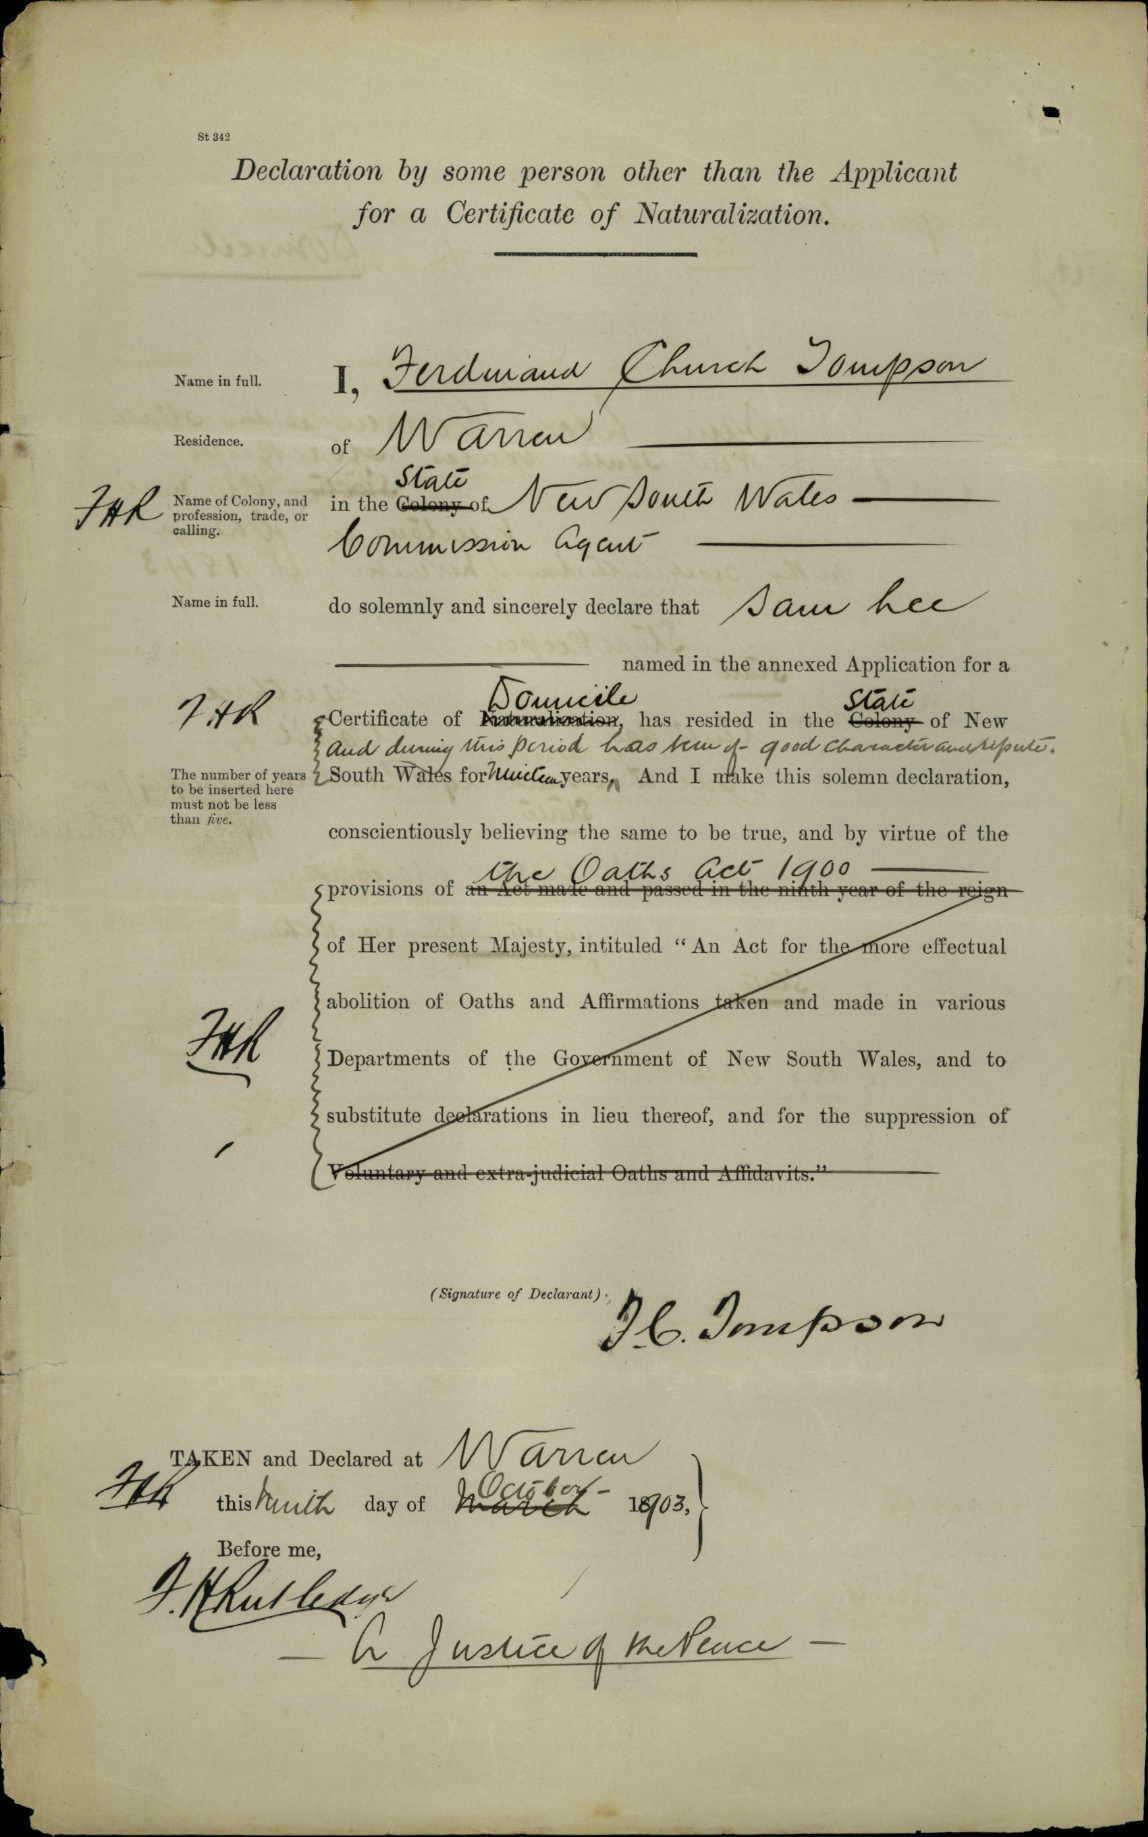 St 342
Declaration by some person other than the Applicant
for a Certificate of Naturalization.
Name in full.
I, Ferdinand Church Tompson
Residence.
of Warren
State
FHR
Name of Colony, and profession, trade, or calling.
in the Colony of New South Wales
Commission Agent
Name in full.
do solemnly and sincerely declare that Sam Lee
named in the annexed Application for a
Domicile State
FHR
Certificate of Naturalization, has resided in the Colony of New
and during this period has been of good character and repute.
The number of years to be inserted here must not be less than five.
South Wales for Nineteen years, And I make this solemn declaration,
conscientiously believing the same to be true, and by virtue of the
the Oaths Act 1900
provisions of an Act made and passed in the ninth year of the reign
of Her present Majesty, intituled "An Act for the more effectual
abolition of Oaths and Affirmations taken and made in various
FHR
Departments of the Government of New South Wales, and to
substitute declarations in lieu thereof, and for the suppression of
Voluntary and extra-judicial Oaths and Affidavits."
(Signature of Declarant)
F. C. Tompson
TAKEN and Declared at Warren
October
FHR
this Ninth day of March 1903,
Before me,
F. H Rutledge
A Justice of the Peace